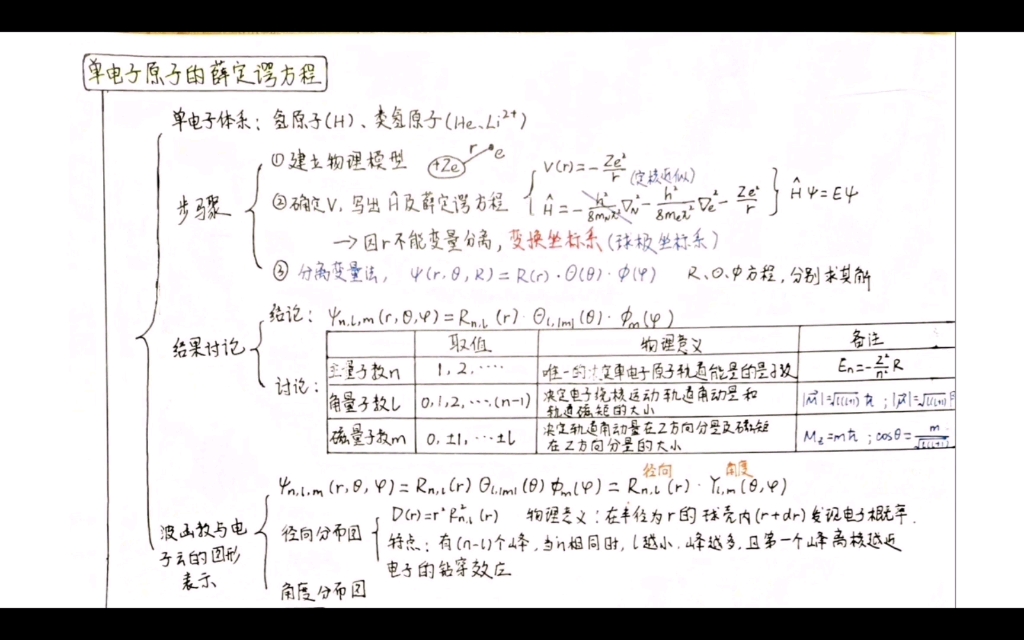 单电子原子的薛定谔方程
单电子体系：氢原子(H)、类氢原子(He、Li²⁺)
步骤
①建立物理模型 +Ze r e
②确定V，写出Ĥ及薛定谔方程
V(r)=-Ze²/r (定核近似)
Ĥ=-h²/8m_Nπ²∇²_N-h²/8m_eπ²∇²_e-Ze²/r
ĤΨ=EΨ
→因r不能变量分离，变换坐标系(球极坐标系)
③分离变量法，Ψ(r,θ,R)=R(r)·Θ(θ)·Φ(φ) R、Θ、Φ方程，分别求其解
结果讨论
结论：Ψn,l,m(r,θ,φ)=Rn,l(r)·Θl,|m|(θ)·Φm(φ)
讨论：
取值 物理意义 备注
主量子数n 1,2,⋯⋯ 唯一的决定单电子原子轨道能量的量子数 En=-Z²/n²R
角量子数l 0,1,2,⋯,(n-1) 决定电子绕核运动轨道角动量和
轨道磁矩的大小 |M|=√l(l+1)ħ；|μ|=√l(l+1)β
磁量子数m 0,±1,⋯±l 决定轨道角动量在Z方向分量及磁矩
在Z方向分量的大小 Mz=mħ；cosθ=m/√l(l+1)
波函数与电
子云的图形
表示
径向 角度
Ψn,l,m(r,θ,φ)=Rn,l(r)Θl,|m|(θ)Φm(φ)=Rn,l(r)·Yl,m(θ,φ)
径向分布图
D(r)=r²R²n,l(r) 物理意义：在半径为r的球壳内(r+dr)发现电子概率.
特点：有(n-l)个峰，当n相同时，l越小，峰越多，且第一个峰离核越近
电子的钻穿效应
角度分布图